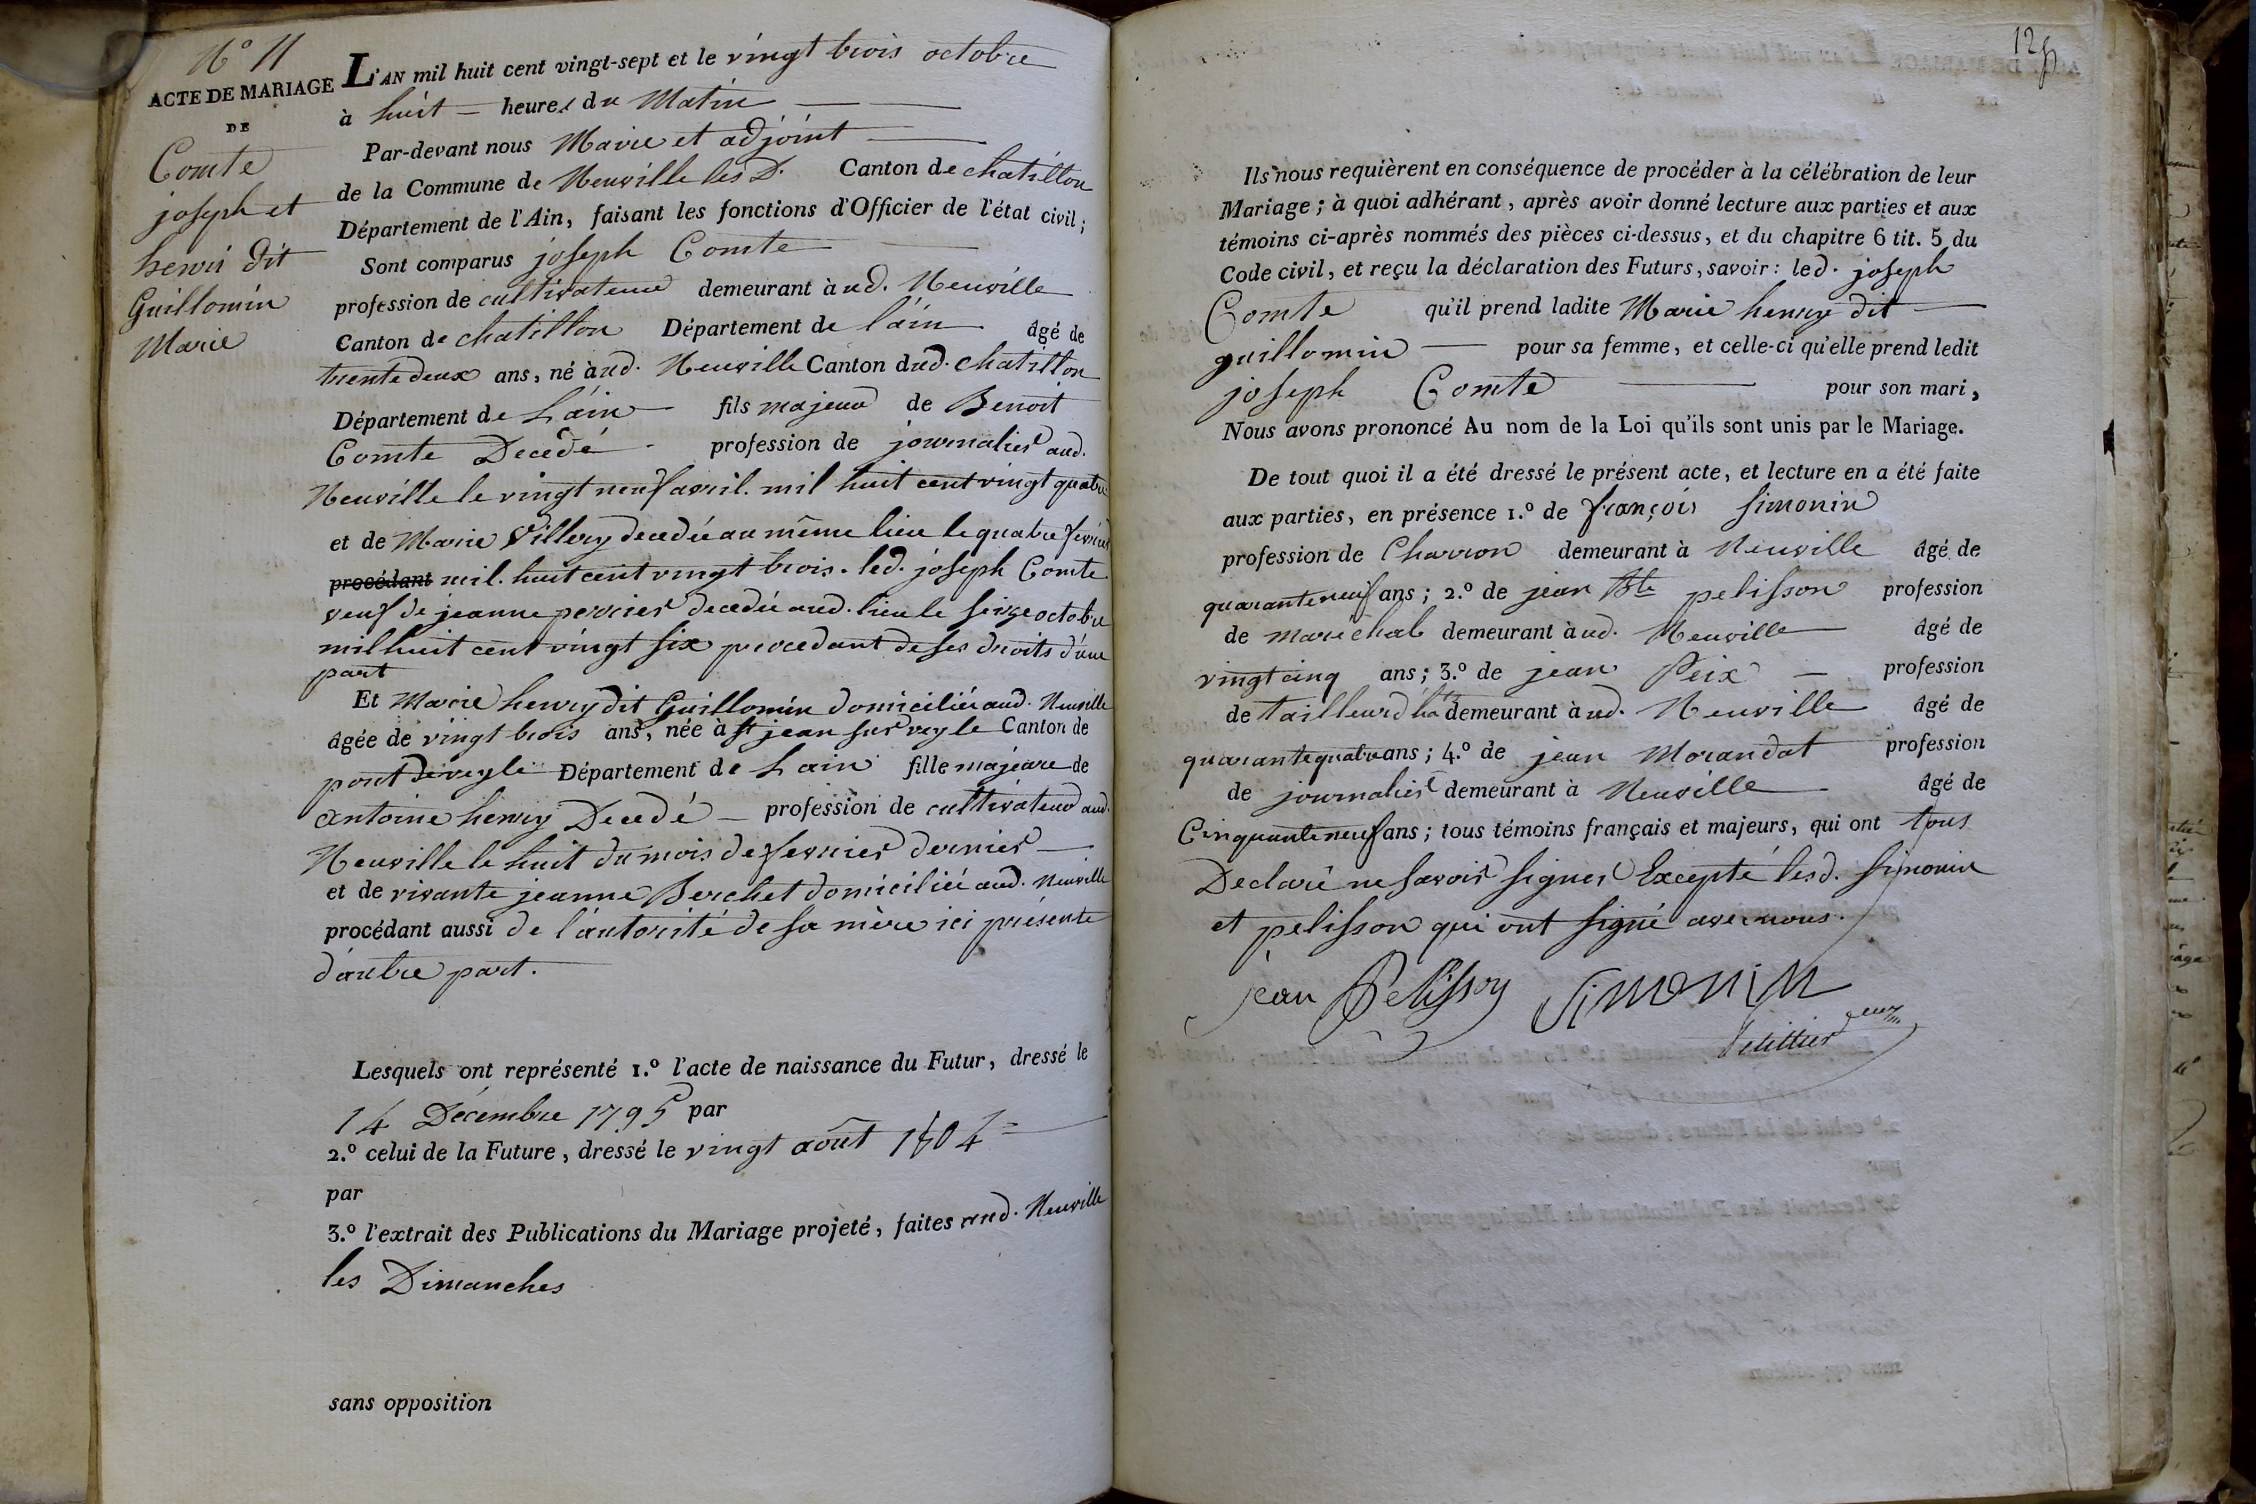 N° 11
ACTE DE MARIAGE
DE
Comte
joseph et
henri dit
Guillomin
Marie
L'AN mil huit cent vingt-sept et le vingt trois octobre
à huit heures du Matin
Par-devant nous Maire et adjoint
de la Commune de Neuville les D. Canton de chatillon
Département de l'Ain, faisant les fonctions d'Officier de l'état civil;
Sont comparus joseph Comte
profession de cultivateur demeurant à ud. Neuville
Canton de chatillon Département de l'ain âgé de
trente deux ans, né à ud. Neuville Canton dud. chatillon
Département de L'ain fils majeur de Benoit
Comte Decedé profession de journalier aud.
Neuville le vingt neuf avril mil huit cent vingt quatre
et de Marie Villery decedée au même lieu le quatre fevrier
procédant mil. huit cent vingt trois. led. joseph Comte
veuf de jeanne perrier decedée aud. lieu le seize octobre
mil huit cent vingt six procedant de ses droits d'une
part
Et Marie henry dit Guillomin domiciliée aud. Neuville
âgée de vingt trois ans, née à st jean sur veyle Canton de
pont de veyle Département de L'ain fille majeure de
antoine henry Decedé profession de cultivateur aud.
Neuville le huit du mois de fevrier dernier
et de vivante jeanne Berchet domiciliée aud. Neuville
procédant aussi de l'autorité de sa mère ici présente
d'autre part.
Lesquels ont représenté 1.° l'acte de naissance du Futur, dressé le
14 Décembre 1795 par
2.° celui de la Future, dressé le vingt août 1804
par
3.° l'extrait des Publications du Mariage projeté, faites aud. Neuville
les Dimanches
sans opposition
Ils nous requièrent en conséquence de procéder à la célébration de leur
Mariage; à quoi adhérant, après avoir donné lecture aux parties et aux
témoins ci-après nommés des pièces ci-dessus, et du chapitre 6 tit. 5 du
Code civil, et reçu la déclaration des Futurs, savoir: led. joseph
Comte qu'il prend ladite Marie henry dit
guillomin pour sa femme, et celle-ci qu'elle prend ledit
joseph Comte pour son mari,
Nous avons prononcé Au nom de la Loi qu'ils sont unis par le Mariage.
De tout quoi il a été dressé le présent acte, et lecture en a été faite
aux parties, en présence 1.° de françois simonin
profession de Charron demeurant à Neuville âgé de
quarante neuf ans; 2.° de jean Bte pelisson profession
de maréchal demeurant à ud. Neuville âgé de
vingt cinq ans; 3.° de jean Peix profession
de tailleur d'hts demeurant à ud. Neuville âgé de
quarante quatre ans; 4.° de jean Morandat profession
de journalier demeurant à Neuville âgé de
Cinquante neuf ans; tous témoins français et majeurs, qui ont tous
Declaré ne savoir signer Excepté lesd. simonin
et pelisson qui ont signé avec nous.
jean Pelisson Simonin